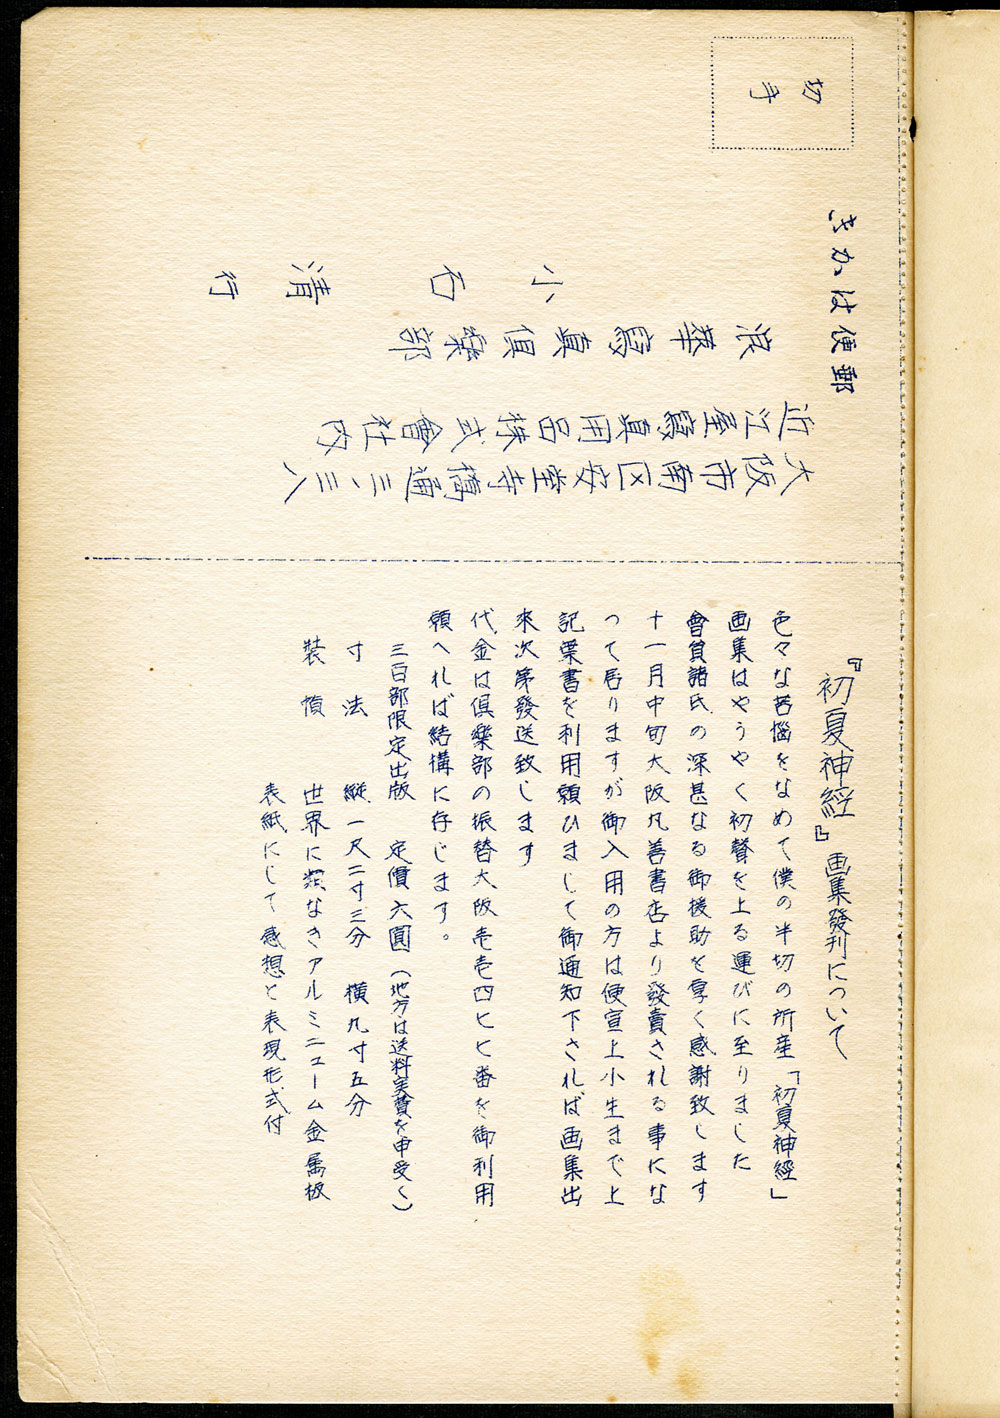 切手
郵便はかき
大阪市南区安堂寺橋通三ノ三八
近江屋寫眞用品株式會社内
浪華寫眞倶楽部
小石清行
『初夏神經』画集發刊について
色々な苦惱をなめて僕の半切の所産「初夏神經」
画集はやうやく初聲を上る運びに至りました
會員諸氏の深甚なる御援助を厚く感謝致します
十一月中旬大阪丸善書店より發賣される事にな
つて居りますが御入用の方は便宜上小生まで上
記葉書を利用願ひまして御通知下されば画集出
來次第發送致します
代金は倶樂部の振替大阪壱壱四七七番を御利用
願へれば結構に存じます。
三百部限定出版 定價六圓（地方は送料実費を申受く）
寸法 縦一尺二寸三分 横九寸五分
裝幀 世界に類なきアルミニューム金属板
表紙にして感想と表現形式付